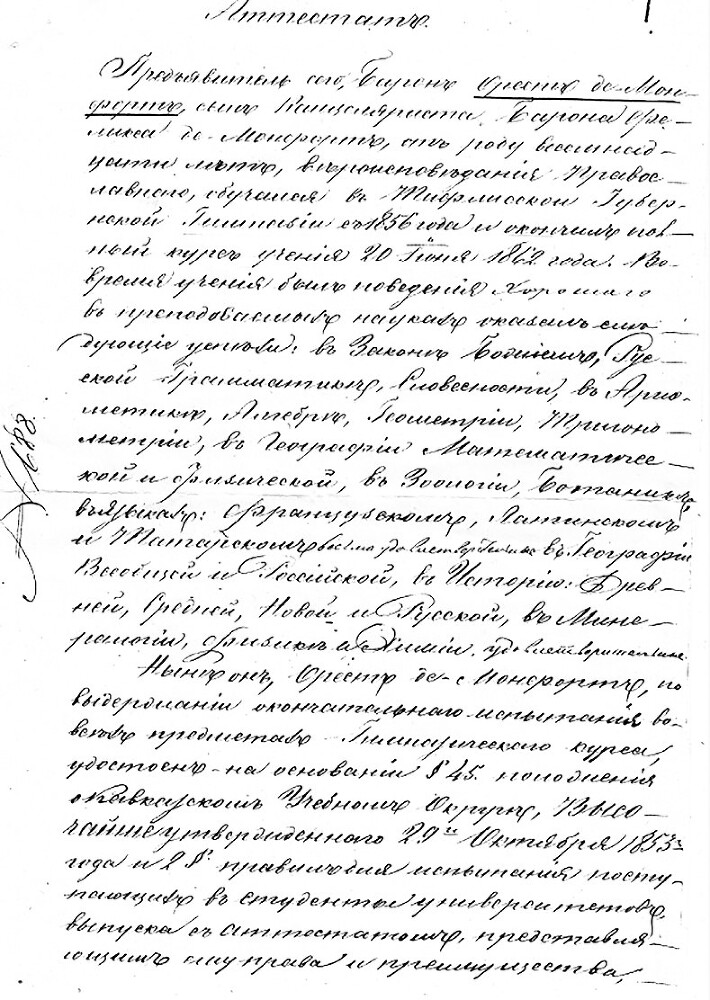 Аттестатъ.
Предъявитель сего, Баронъ Орестъ де-Мон-
фортъ, сынъ Канцеляриста Барона Фе-
ликса де-Монфортъ, отъ роду восемнад-
цати лѣтъ, вѣроисповѣданія Правос-
лавнаго, обучался въ Тифлисской Губер-
нской Гимназіи съ 1856 года и окончилъ пол-
ный курсъ ученія 20 Іюня 1862 года. Во
время ученія былъ поведенія хорошаго
въ преподаваемыхъ наукахъ оказалъ слѣ-
дующіе успѣхи: въ Законѣ Божіемъ, Рус-
ской Грамматикѣ, Словесности, въ Ариѳ-
метикѣ, Алгебрѣ, Геометріи, Тригоно-
метріи, въ Географіи Математичес-
кой и Физической, въ Зоологіи, Ботаникѣ,
въ языкахъ: Французскомъ, Латинскомъ
и Татарскомъ весьма удовлетворительные въ Географіи
Всеобщей и Россійской, въ Исторіи: Древ-
ней, Средней, Новой и Русской, въ Мине-
ралогіи, Физикѣ и Химіи, удовлетворительные.
Нынѣ онъ, Орестъ де-Монфортъ, по
выдержаніи окончательнаго испытанія во
всѣхъ предметахъ Гимназическаго курса,
удостоенъ на основаніи § 45. положенія
о Кавказскомъ Учебномъ Округѣ, Высо-
чайше утвержденнаго 29го Октября 1853го
года и 2 §. правилъ для испытанія посту-
пающихъ въ студенты университетовъ,
выпуска съ аттестатомъ, представля-
ющимъ ему права и преимущества,
№ 688.